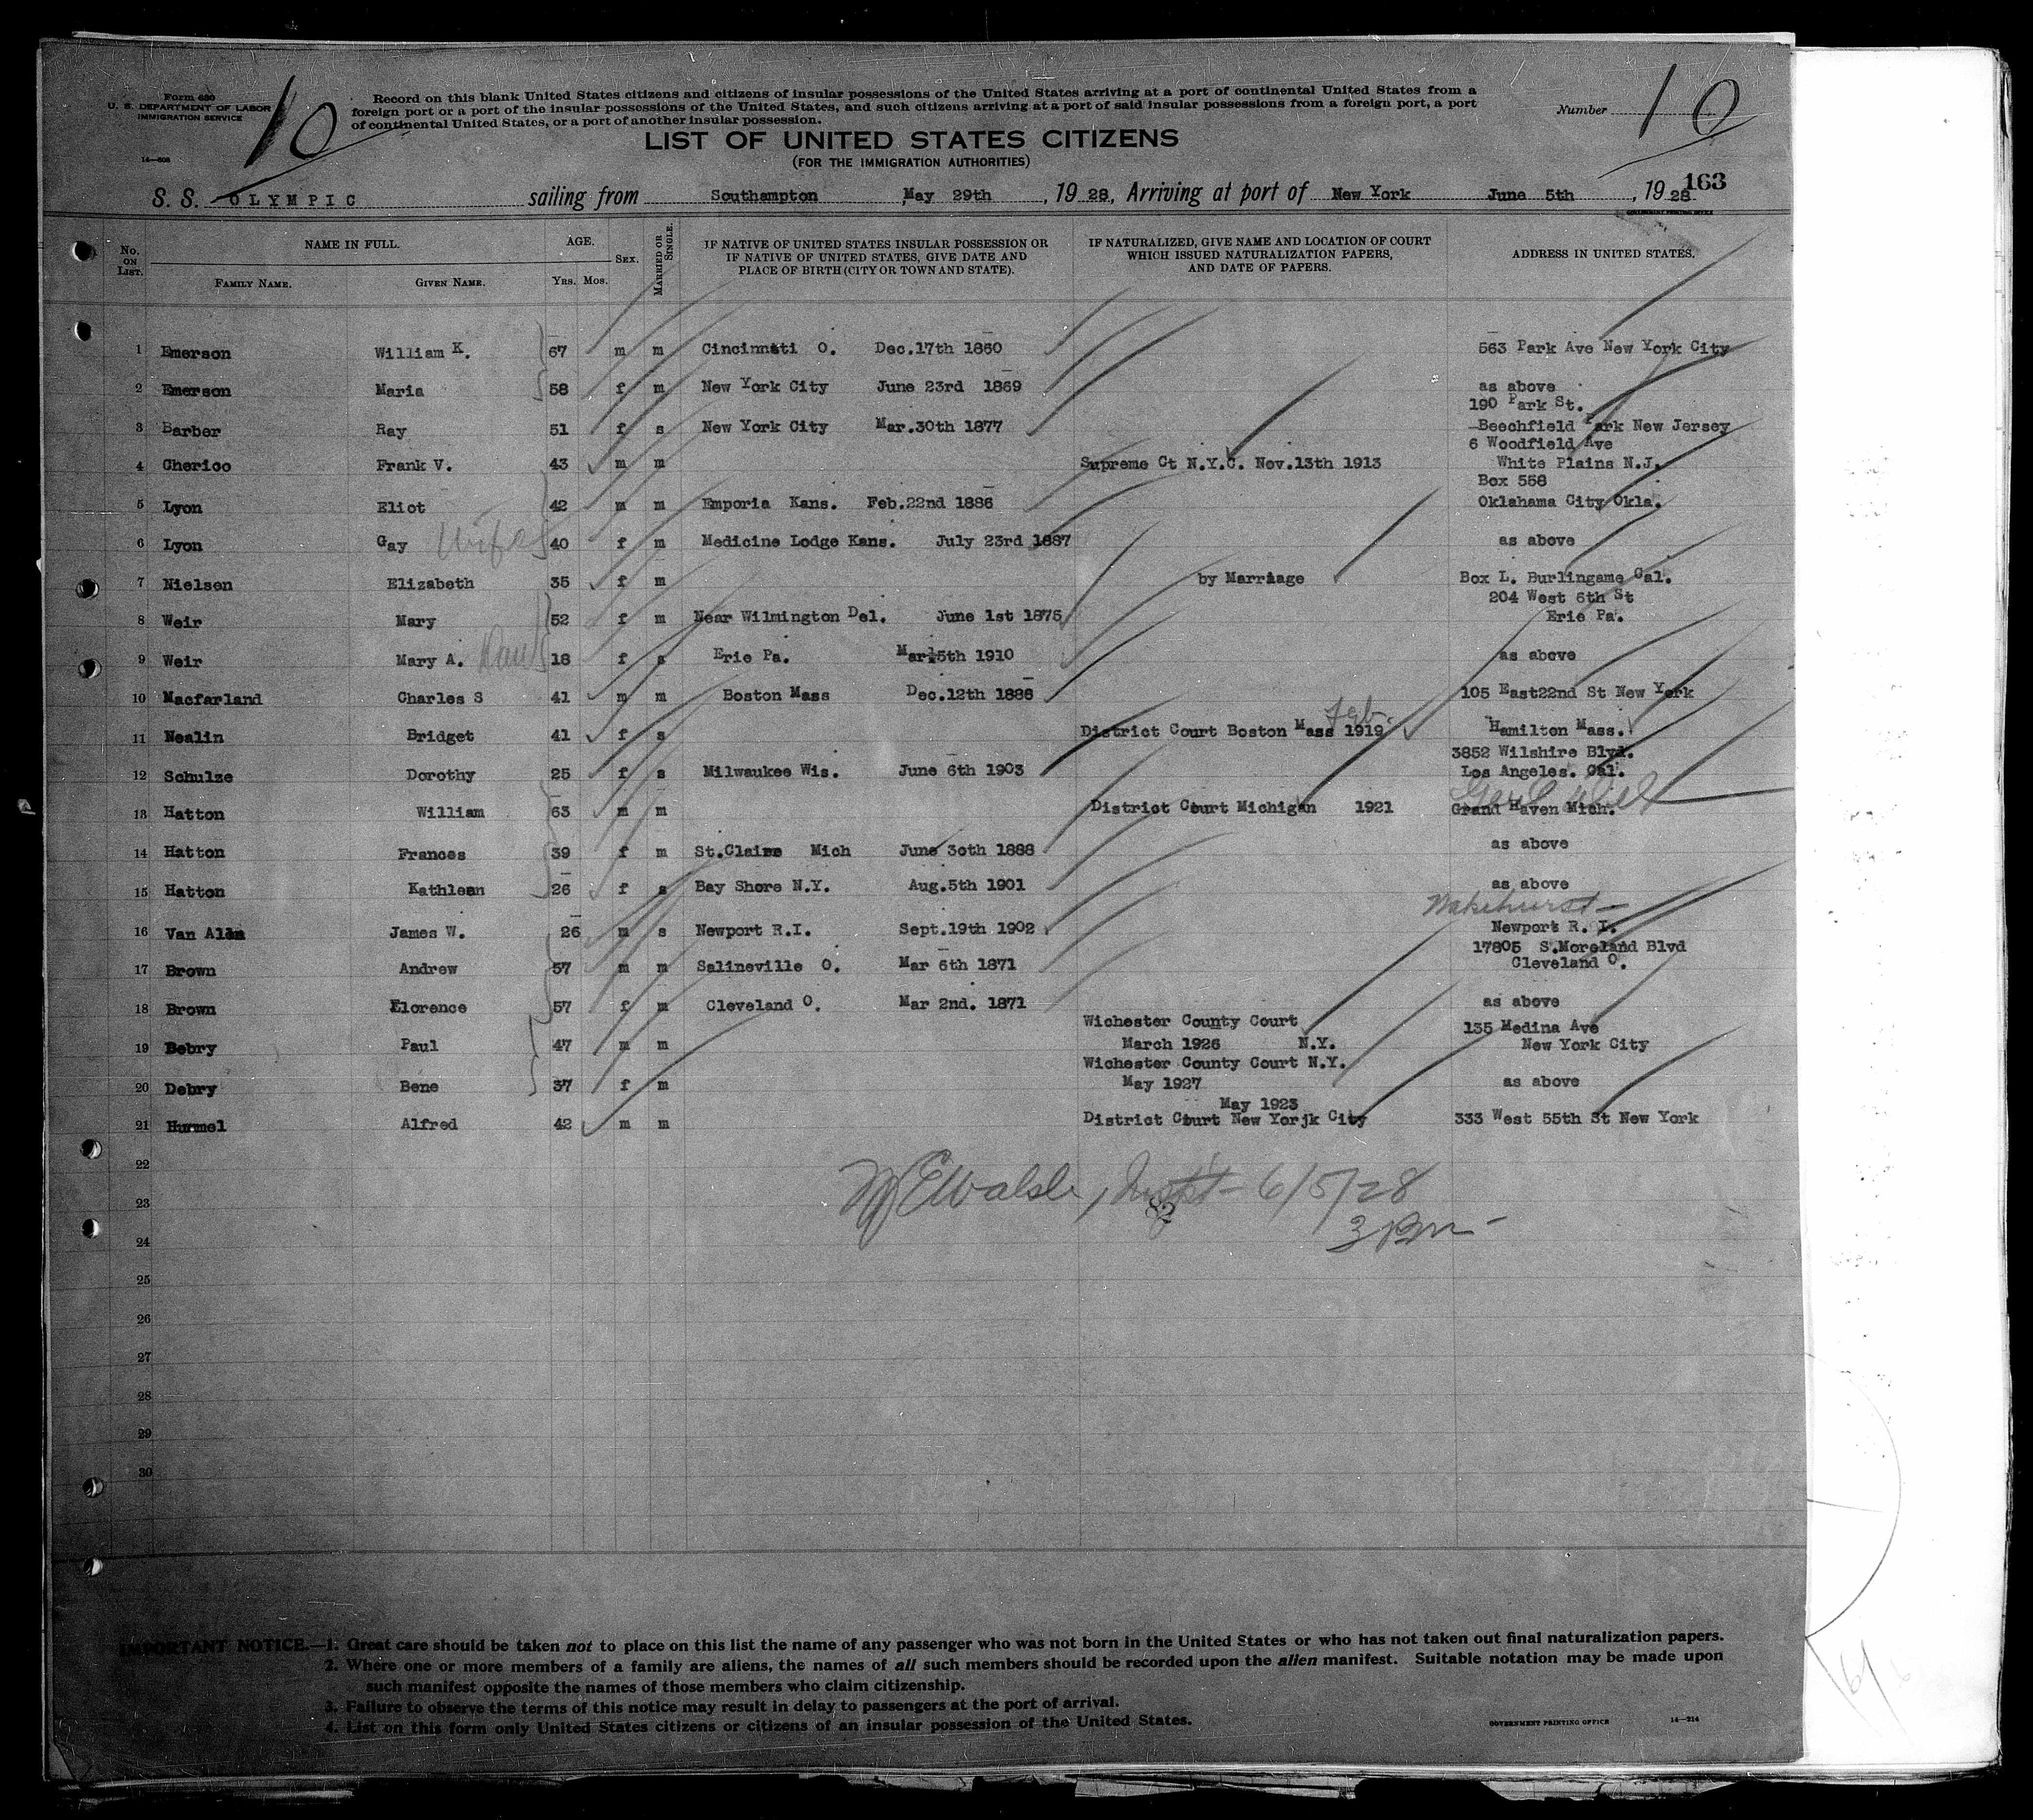 Form 630
U. S. DEPARTMENT OF LABOR
IMMIGRATION SERVICE
14—608
10
Record on this blank United States citizens and citizens of insular possessions of the United States arriving at a port of continental United States from a
foreign port or a port of the insular possessions of the United States, and such citizens arriving at a port of said insular possessions from a foreign port, a port
of continental United States, or a port of another insular possession.
Number 10
LIST OF UNITED STATES CITIZENS
(FOR THE IMMIGRATION AUTHORITIES)
163
S. S. OLYMPIC sailing from Southampton May 29th, 1928, Arriving at port of New York June 5th, 1928
GOVERNMENT PRINTING OFFICE
No. ON LIST. NAME IN FULL. FAMILY NAME. GIVEN NAME. AGE. YRS. MOS. SEX. MARRIED OR SINGLE. IF NATIVE OF UNITED STATES INSULAR POSSESSION OR IF NATIVE OF UNITED STATES, GIVE DATE AND PLACE OF BIRTH (CITY OR TOWN AND STATE). IF NATURALIZED, GIVE NAME AND LOCATION OF COURT WHICH ISSUED NATURALIZATION PAPERS, AND DATE OF PAPERS. ADDRESS IN UNITED STATES.
1 Emerson William K. 67 m m Cincinnati O. Dec.17th 1860 563 Park Ave New York City
2 Emerson Maria 58 f m New York City June 23rd 1869 as above
190 Park St.
3 Barber Ray 51 f s New York City Mar.30th 1877 Beechfield Park New Jersey
6 Woodfield Ave
4 Cherico Frank V. 43 m m Supreme Ct N.Y.C. Nov.13th 1913 White Plains N.J.
Box 558
5 Lyon Eliot 42 m m Emporia Kans. Feb.22nd 1886 Oklahoma City Okla.
6 Lyon Gay Wife 40 f m Medicine Lodge Kans. July 23rd 1887 as above
7 Nielsen Elizabeth 35 f m by Marriage Box L. Burlingame Cal.
204 West 6th St
8 Weir Mary 52 f m Near Wilmington Del. June 1st 1875 Erie Pa.
9 Weir Mary A. Dau 18 f s Erie Pa. Mar 15th 1910 as above
10 Macfarland Charles S 41 m m Boston Mass Dec.12th 1886 105 East22nd St New York
Feb.
11 Nealin Bridget 41 f s District Court Boston Mass 1919 Hamilton Mass.
3852 Wilshire Blvd.
12 Schulze Dorothy 25 f s Milwaukee Wis. June 6th 1903 Los Angeles. Cal.
13 Hatton William 63 m m District Court Michigan 1921 Grand Haven Mich.
14 Hatton Frances 39 f m St.Claire Mich June 30th 1888 as above
15 Hatton Kathleen 26 f s Bay Shore N.Y. Aug.5th 1901 as above
Wakehurst
16 Van Alen James W. 26 m s Newport R.I. Sept.19th 1902 Newport R. I.
17805 S.Moreland Blvd
17 Brown Andrew 57 m m Salineville O. Mar 6th 1871 Cleveland O.
18 Brown Florence 57 f m Cleveland O. Mar 2nd. 1871 as above
Wichester County Court 135 Medina Ave
19 Debry Paul 47 m m March 1926 N.Y. New York City
Wichester County Court N.Y.
20 Debry Bene 37 f m May 1927 as above
May 1923
21 Hummel Alfred 42 m m District Court New Yorjk City 333 West 55th St New York
22
W E Walsh, Inspt- 6/5/28
23
3 PM -
24
25
26
27
28
29
30
IMPORTANT NOTICE.—1. Great care should be taken not to place on this list the name of any passenger who was not born in the United States or who has not taken out final naturalization papers.
2. Where one or more members of a family are aliens, the names of all such members should be recorded upon the alien manifest. Suitable notation may be made upon
such manifest opposite the names of those members who claim citizenship.
3. Failure to observe the terms of this notice may result in delay to passengers at the port of arrival.
4. List on this form only United States citizens or citizens of an insular possession of the United States.
GOVERNMENT PRINTING OFFICE 14—214